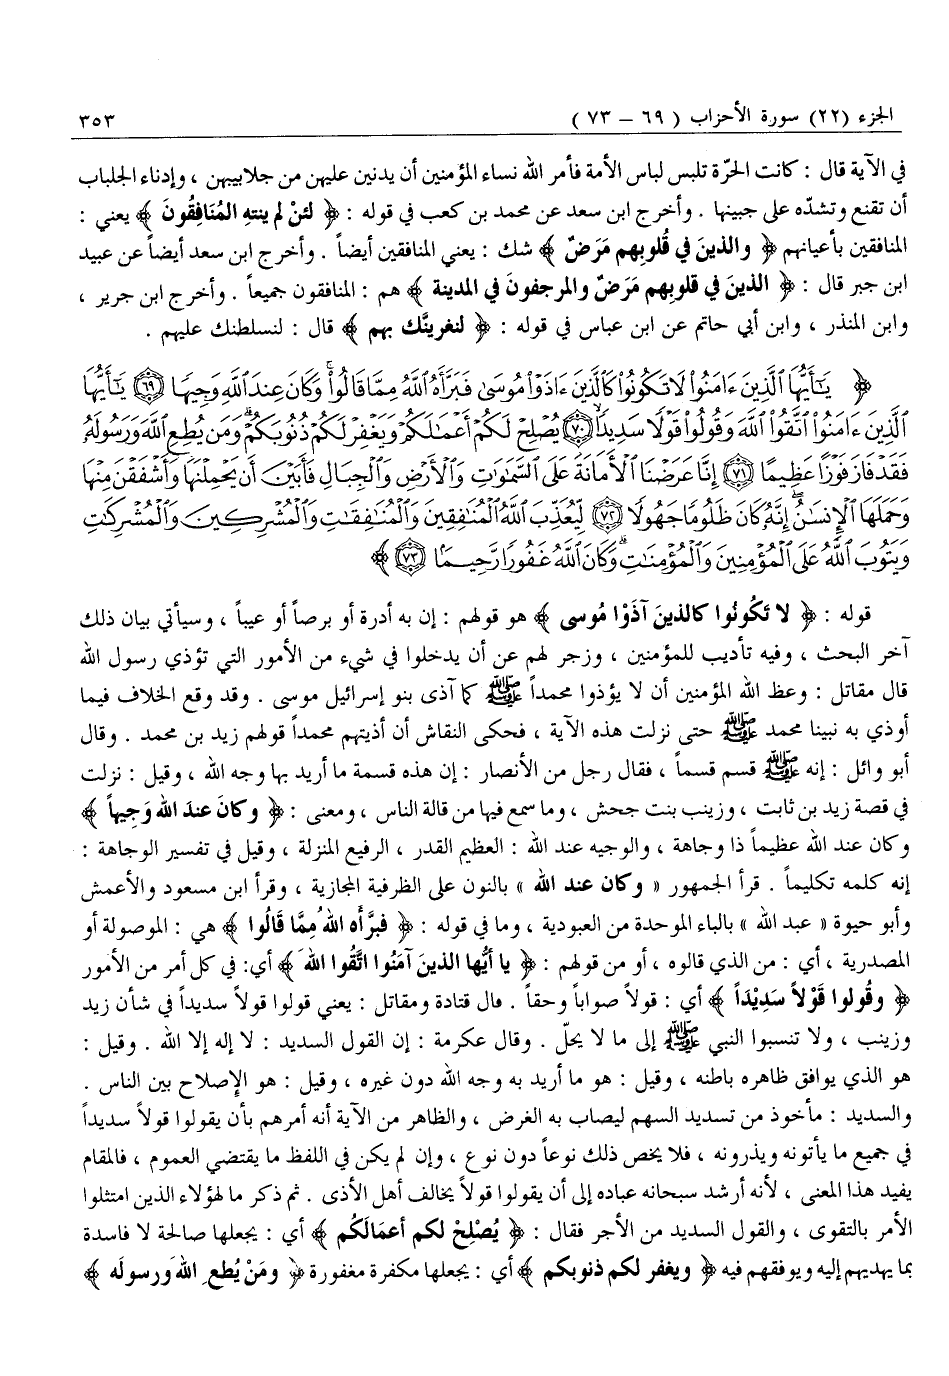 الجزء (٢٢) سورة الأحزاب ( ٦٩ – ٧٣ ) ٣٥٣
في الآية قال : كانت الحرّة تلبس لباس الأمة فأمر الله نساء المؤمنين أن يدنين عليهن من جلابيبهن ، وإدناء الجلباب
أن تقنع وتشدّه على جبينها . وأخرج ابن سعد عن محمد بن كعب في قوله : ﴿ لئنْ لم ينتهِ المُنَافِقُونَ ﴾ يعني :
المنافقين بأعيانهم ﴿ والذينَ في قُلوبِهم مَرَضٌ ﴾ شك : يعني المنافقين أيضاً . وأخرج ابن سعد أيضاً عن عبيد
ابن جبر قال : ﴿ الذينَ في قلوبهم مَرَضٌ والمرجفونَ في المدينة ﴾ هم : المنافقون جميعاً . وأخرج ابن جرير ،
وابن المنذر ، وابن أبي حاتم عن ابن عباس في قوله : ﴿ لنغرينَّك بهم ﴾ قال : لنسلطنك عليهم .
﴿ يَٰٓأَيُّهَا ٱلَّذِينَ ءَامَنُوا۟ لَا تَكُونُوا۟ كَٱلَّذِينَ ءَاذَوْا۟ مُوسَىٰ فَبَرَّأَهُ ٱللَّهُ مِمَّا قَالُوا۟ۚ وَكَانَ عِندَ ٱللَّهِ وَجِيهًا ﴿٦٩﴾ يَٰٓأَيُّهَا
ٱلَّذِينَ ءَامَنُوا۟ ٱتَّقُوا۟ ٱللَّهَ وَقُولُوا۟ قَوْلًا سَدِيدًا ﴿٧٠﴾ يُصْلِحْ لَكُمْ أَعْمَٰلَكُمْ وَيَغْفِرْ لَكُمْ ذُنُوبَكُمْۗ وَمَن يُطِعِ ٱللَّهَ وَرَسُولَهُۥ
فَقَدْ فَازَ فَوْزًا عَظِيمًا ﴿٧١﴾ إِنَّا عَرَضْنَا ٱلْأَمَانَةَ عَلَى ٱلسَّمَٰوَٰتِ وَٱلْأَرْضِ وَٱلْجِبَالِ فَأَبَيْنَ أَن يَحْمِلْنَهَا وَأَشْفَقْنَ مِنْهَا
وَحَمَلَهَا ٱلْإِنسَٰنُۖ إِنَّهُۥ كَانَ ظَلُومًا جَهُولًا ﴿٧٢﴾ لِّيُعَذِّبَ ٱللَّهُ ٱلْمُنَٰفِقِينَ وَٱلْمُنَٰفِقَٰتِ وَٱلْمُشْرِكِينَ وَٱلْمُشْرِكَٰتِ
وَيَتُوبَ ٱللَّهُ عَلَى ٱلْمُؤْمِنِينَ وَٱلْمُؤْمِنَٰتِۗ وَكَانَ ٱللَّهُ غَفُورًا رَّحِيمًۢا ﴿٧٣﴾ ﴾
قوله : ﴿ لا تَكُونُوا كالذينَ آذَوْا مُوسى ﴾ هو قولهم : إن به أدرة أو برصاً أو عيباً ، وسيأتي بيان ذلك
آخر البحث ، وفيه تأديب للمؤمنين ، وزجر لهم عن أن يدخلوا في شيء من الأمور التي تؤذي رسول الله
قال مقاتل : وعظ الله المؤمنين أن لا يؤذوا محمداً ﷺ كما آذى بنو إسرائيل موسى . وقد وقع الخلاف فيما
أوذي به نبينا محمد ﷺ حتى نزلت هذه الآية ، فحكى النقاش أن أذيتهم محمداً قولهم زيد بن محمد . وقال
أبو وائل : إنه ﷺ قسم قسماً ، فقال رجل من الأنصار : إن هذه قسمة ما أريد بها وجه الله ، وقيل : نزلت
في قصة زيد بن ثابت ، وزينب بنت جحش ، وما سمع فيها من قالة الناس ، ومعنى : ﴿ وكانَ عندَ الله وَجِيهاً ﴾
وكان عند الله عظيماً ذا وجاهة ، والوجيه عند الله : العظيم القدر ، الرفيع المنزلة ، وقيل في تفسير الوجاهة :
إنه كلمه تكليماً . قرأ الجمهور « وكان عند الله » بالنون على الظرفية المجازية ، وقرأ ابن مسعود والأعمش
وأبو حيوة « عبد الله » بالباء الموحدة من العبودية ، وما في قوله : ﴿ فبرَّأه اللهُ مِمَّا قَالُوا ﴾ هي : الموصولة أو
المصدرية ، أي : من الذي قالوه ، أو من قولهم : ﴿ يا أيُّها الذينَ آمَنُوا اتَّقُوا اللهَ ﴾ أي: في كل أمر من الأمور
﴿ وقُولوا قَوْلاً سَدِيْدَاً ﴾ أي : قولاً صواباً وحقاً . قال قتادة ومقاتل : يعني قولوا قولاً سديداً في شأن زيد
وزينب ، ولا تنسبوا النبي ﷺ إلى ما لا يحلّ . وقال عكرمة : إن القول السديد : لا إله إلا الله . وقيل :
هو الذي يوافق ظاهره باطنه ، وقيل : هو ما أريد به وجه الله دون غيره ، وقيل : هو الإصلاح بين الناس .
والسديد : مأخوذ من تسديد السهم ليصاب به الغرض ، والظاهر من الآية أنه أمرهم بأن يقولوا قولاً سديداً
في جميع ما يأتونه ويذرونه ، فلا يخص ذلك نوعاً دون نوع ، وإن لم يكن في اللفظ ما يقتضي العموم ، فالمقام
يفيد هذا المعنى ، لأنه أرشد سبحانه عباده إلى أن يقولوا قولاً يخالف أهل الأذى . ثم ذكر ما لهؤلاء الذين امتثلوا
الأمر بالتقوى ، والقول السديد من الأجر فقال : ﴿ يُصْلِحْ لكم أعمَالَكُم ﴾ أي : يجعلها صالحة لا فاسدة
بما يهديهم إليه ويوفقهم فيه ﴿ ويغفر لكم ذنوبكم ﴾ أي : يجعلها مكفرة مغفورة ﴿ ومَنْ يُطع ِ اللهَ ورسولَه ﴾